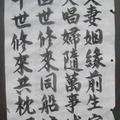 夫妻姻緣前生定
夫唱婦隨萬事
百世修來同船
千世修來共枕